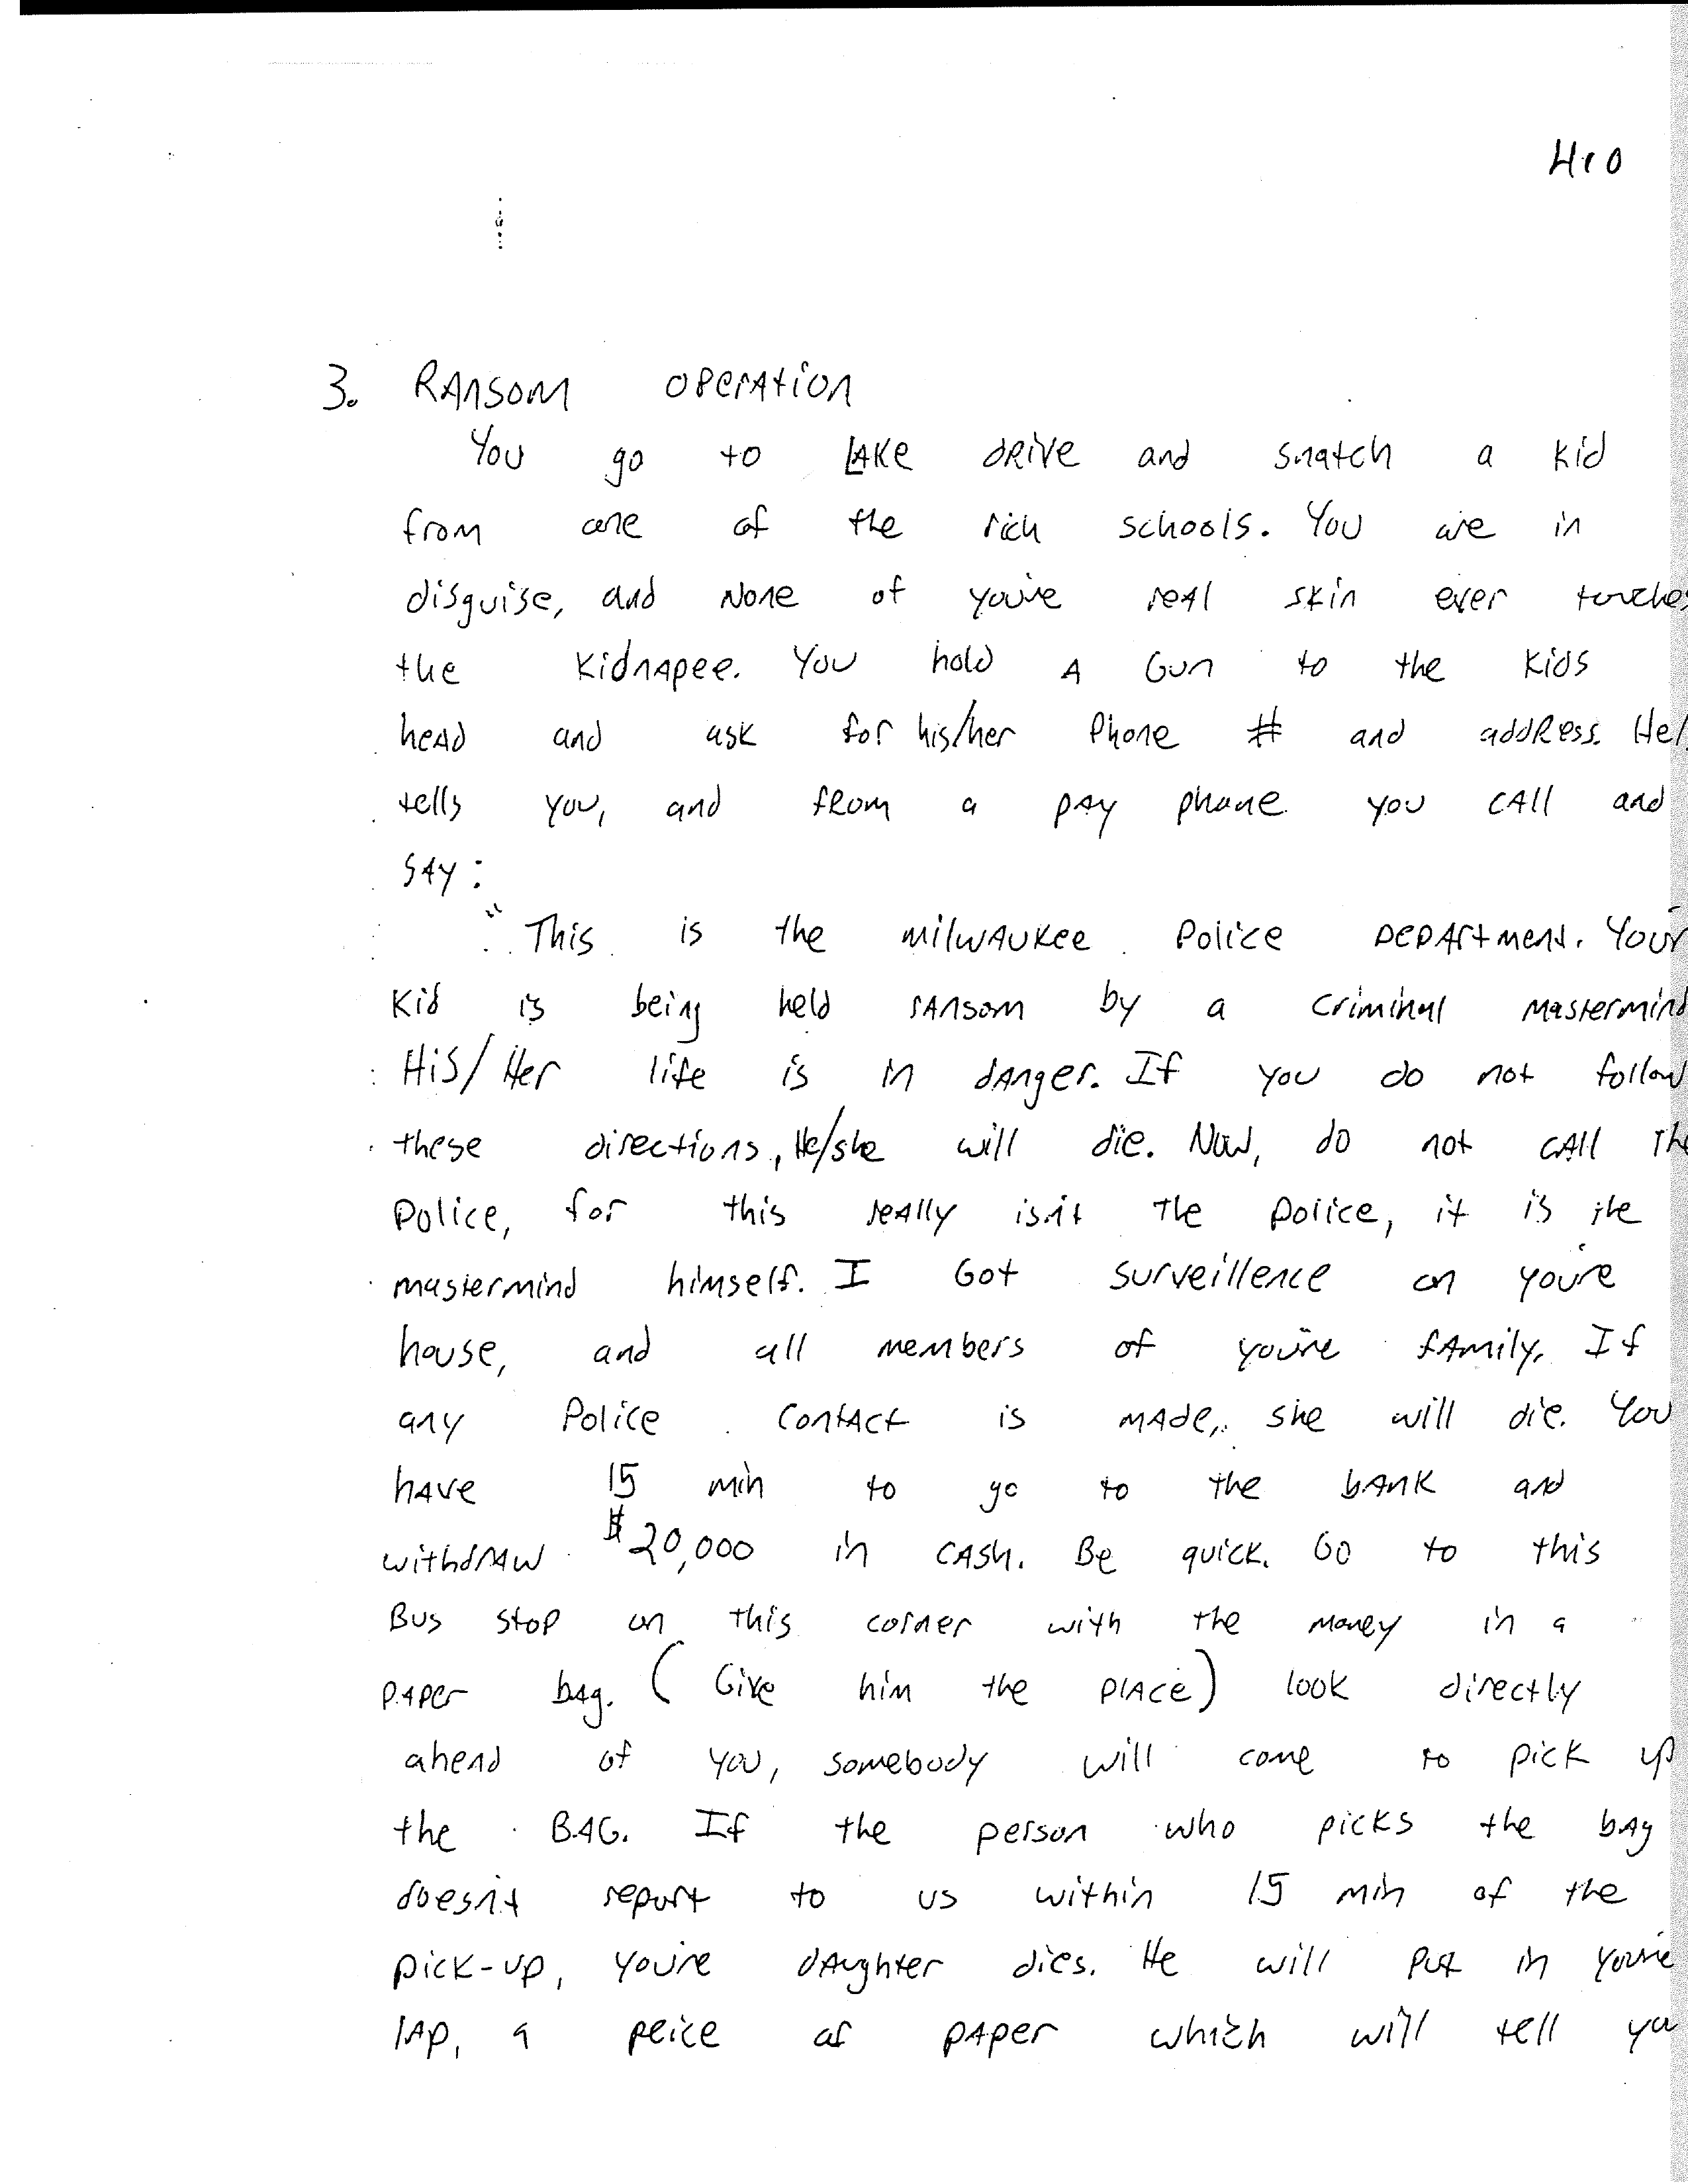 410
3. RANSOM OPERATION
You go to LAKE DRIVE and snatch a kid
from one of the rich schools. You are in
disguise, and None of you're real skin ever touches
the kidnapee. You hold A Gun to the kids
head and ask for his/her Phone # and address. He/
tells you, and from a pay phone you call and
say:
"This is the milwaukee Police Department. Your
Kid is being held ransom by a criminal mastermind
His/Her life is in danger. If you do not follow
these directions, He/she will die. Now, do not call the
Police, for this really isn't the police, it is the
mastermind himself. I Got surveillence on you're
house, and all members of you're family. If
any Police contact is made, she will die. You
have 15 min to go to the bank and
withdraw $20,000 in cash. Be quick. Go to this
Bus stop on this corner with the money in a
paper bag. (Give him the place) look directly
ahead of you, somebody will come to pick up
the BAG. If the person who picks the bag
doesn't report to us within 15 min of the
pick-up, you're daughter dies. He will put in you're
lap, a peice of paper which will tell you